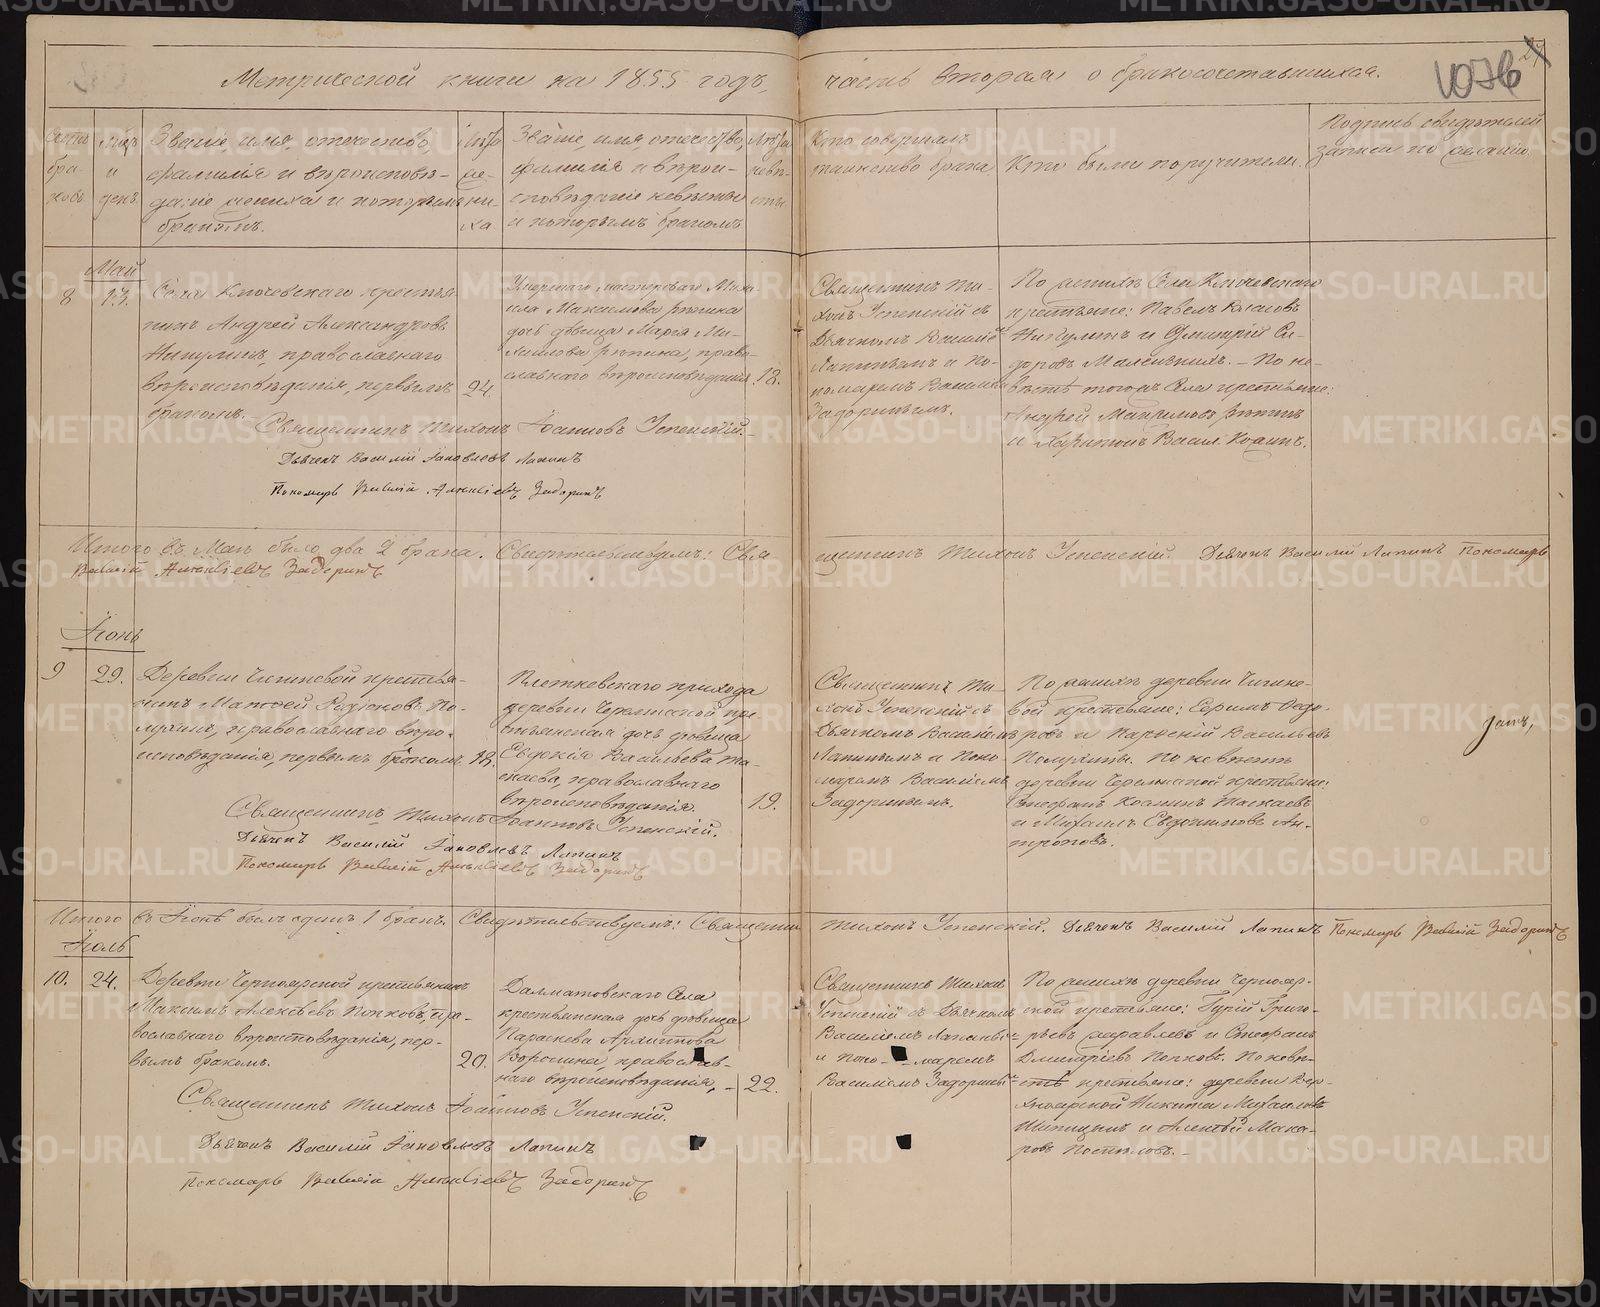 Метрической книги на 1855 годъ, часть вторая о бракосочетавшихся.
1076
27
Мѣц
и
день
Званіе, имя, отчество,
фамилія и вѣроисповѣ-
даніе жениха и которымъ
бракомъ.
Лѣта
же-
ни-
ха
Званіе, имя, отечество,
фамилія и вѣрои-
сповѣданіе невѣсты
и которымъ бракомъ
Лѣта
невѣ-
сты
Кто совершалъ
таинство брака
Кто были поручители.
Подпись свидѣтелей
записи по желанію
Май
8
13.
Села Ключевскаго крестья-
нинъ Андрей Александровъ
православнаго
вѣроисповѣданія, первымъ
бракомъ.
24.
мастероваго Миха-
ила Максимова
дочь дѣвица Марѳа Ми-
хаилова право-
славнаго вѣроисповѣданія
18.
Священникъ Ти-
хонъ Успенскій съ
Дьячкомъ Василіе
Лапинымъ и По-
номаремъ Василіем
Задоринымъ.
По женихѣ Села Ключевскаго
крестьяне: Павелъ Власовъ
и Димитрій Си-
доровъ По не-
вѣстѣ тогожъ Села крестьяне:
Андрей
и Харитонъ Васил.
Священникъ Тихонъ Іоанновъ Успенскій.
Дьячекъ Василій Іаковлевъ Лапинъ
Пономарь Василій Алексіевъ Задоринъ
Итого въ Маѣ было два 2 брака. Свидѣтельствуемъ: Священникъ Тихонъ Успенскій. Дьячекъ Василій Лапинъ Пономарь
Василій Алексіевъ Задоринъ
Іюнь
9
29.
Деревни крестья-
нинъ Матѳей По-
православнаго вѣро-
исповѣданія, первымъ бракомъ.
18.
прихода
деревни кре-
стьянская дочь дѣвица
Евдокія Васильева Та-
скаева, православнаго
вѣроисповѣданія.
19.
Священникъ Ти-
хонъ Успенскій съ
Дьячкомъ Василіемъ
Лапинымъ и Поно-
маремъ Василіемъ
Задоринымъ.
По женихѣ деревни
вой крестьяне: Ефимъ Ѳедо-
ровъ и Васильевъ
По невѣстѣ
деревни крестьяне:
Стефанъ Таскаевъ
и Михаилъ Евдокимовъ Ан-
троповъ.
Священникъ Тихонъ Іоанновъ Успенскій.
Дьячекъ Василій Іаковлевъ Лапинъ
Пономарь Василій Алексіевъ Задоринъ
Итого въ Іюнѣ былъ одинъ 1 бракъ. Свидѣтельствуемъ: Священникъ Тихонъ Успенскій. Дьячекъ Василій Лапинъ Пономарь Василій Задоринъ
Іюль
10.
24.
Деревни Черноярской крестьянинъ
Максимъ Алексѣевъ Попковъ, пра-
вославнаго вѣроисповѣданія, пер-
вымъ бракомъ.
20.
Далматовскаго Села
крестьянская дочь дѣвица
Параскева Архиппова
Воронина, православ-
наго вѣроисповѣданія,
22.
Священникъ Тихонъ
Успенскій съ Дьячкомъ
Василіемъ Лапины-
и Поно- маремъ
Василіемъ Задорины
По женихѣ деревни Чернояр-
ской крестьяне: Гурій Григо-
рьевъ Журавлевъ и Стефанъ
Дмитріевъ Попковъ. По невѣ-
стѣ крестьяне: деревни Вер-
хноярской Никита Михаиловъ
Шипицынъ и Алексѣй Мака-
ровъ Поспѣловъ.
Священникъ Тихонъ Іоанновъ Успенскій.
Дьячекъ Василій Іаковлевъ Лапинъ
Пономарь Василій Алексіевъ Задоринъ
METRIKI.GASO-URAL.RU